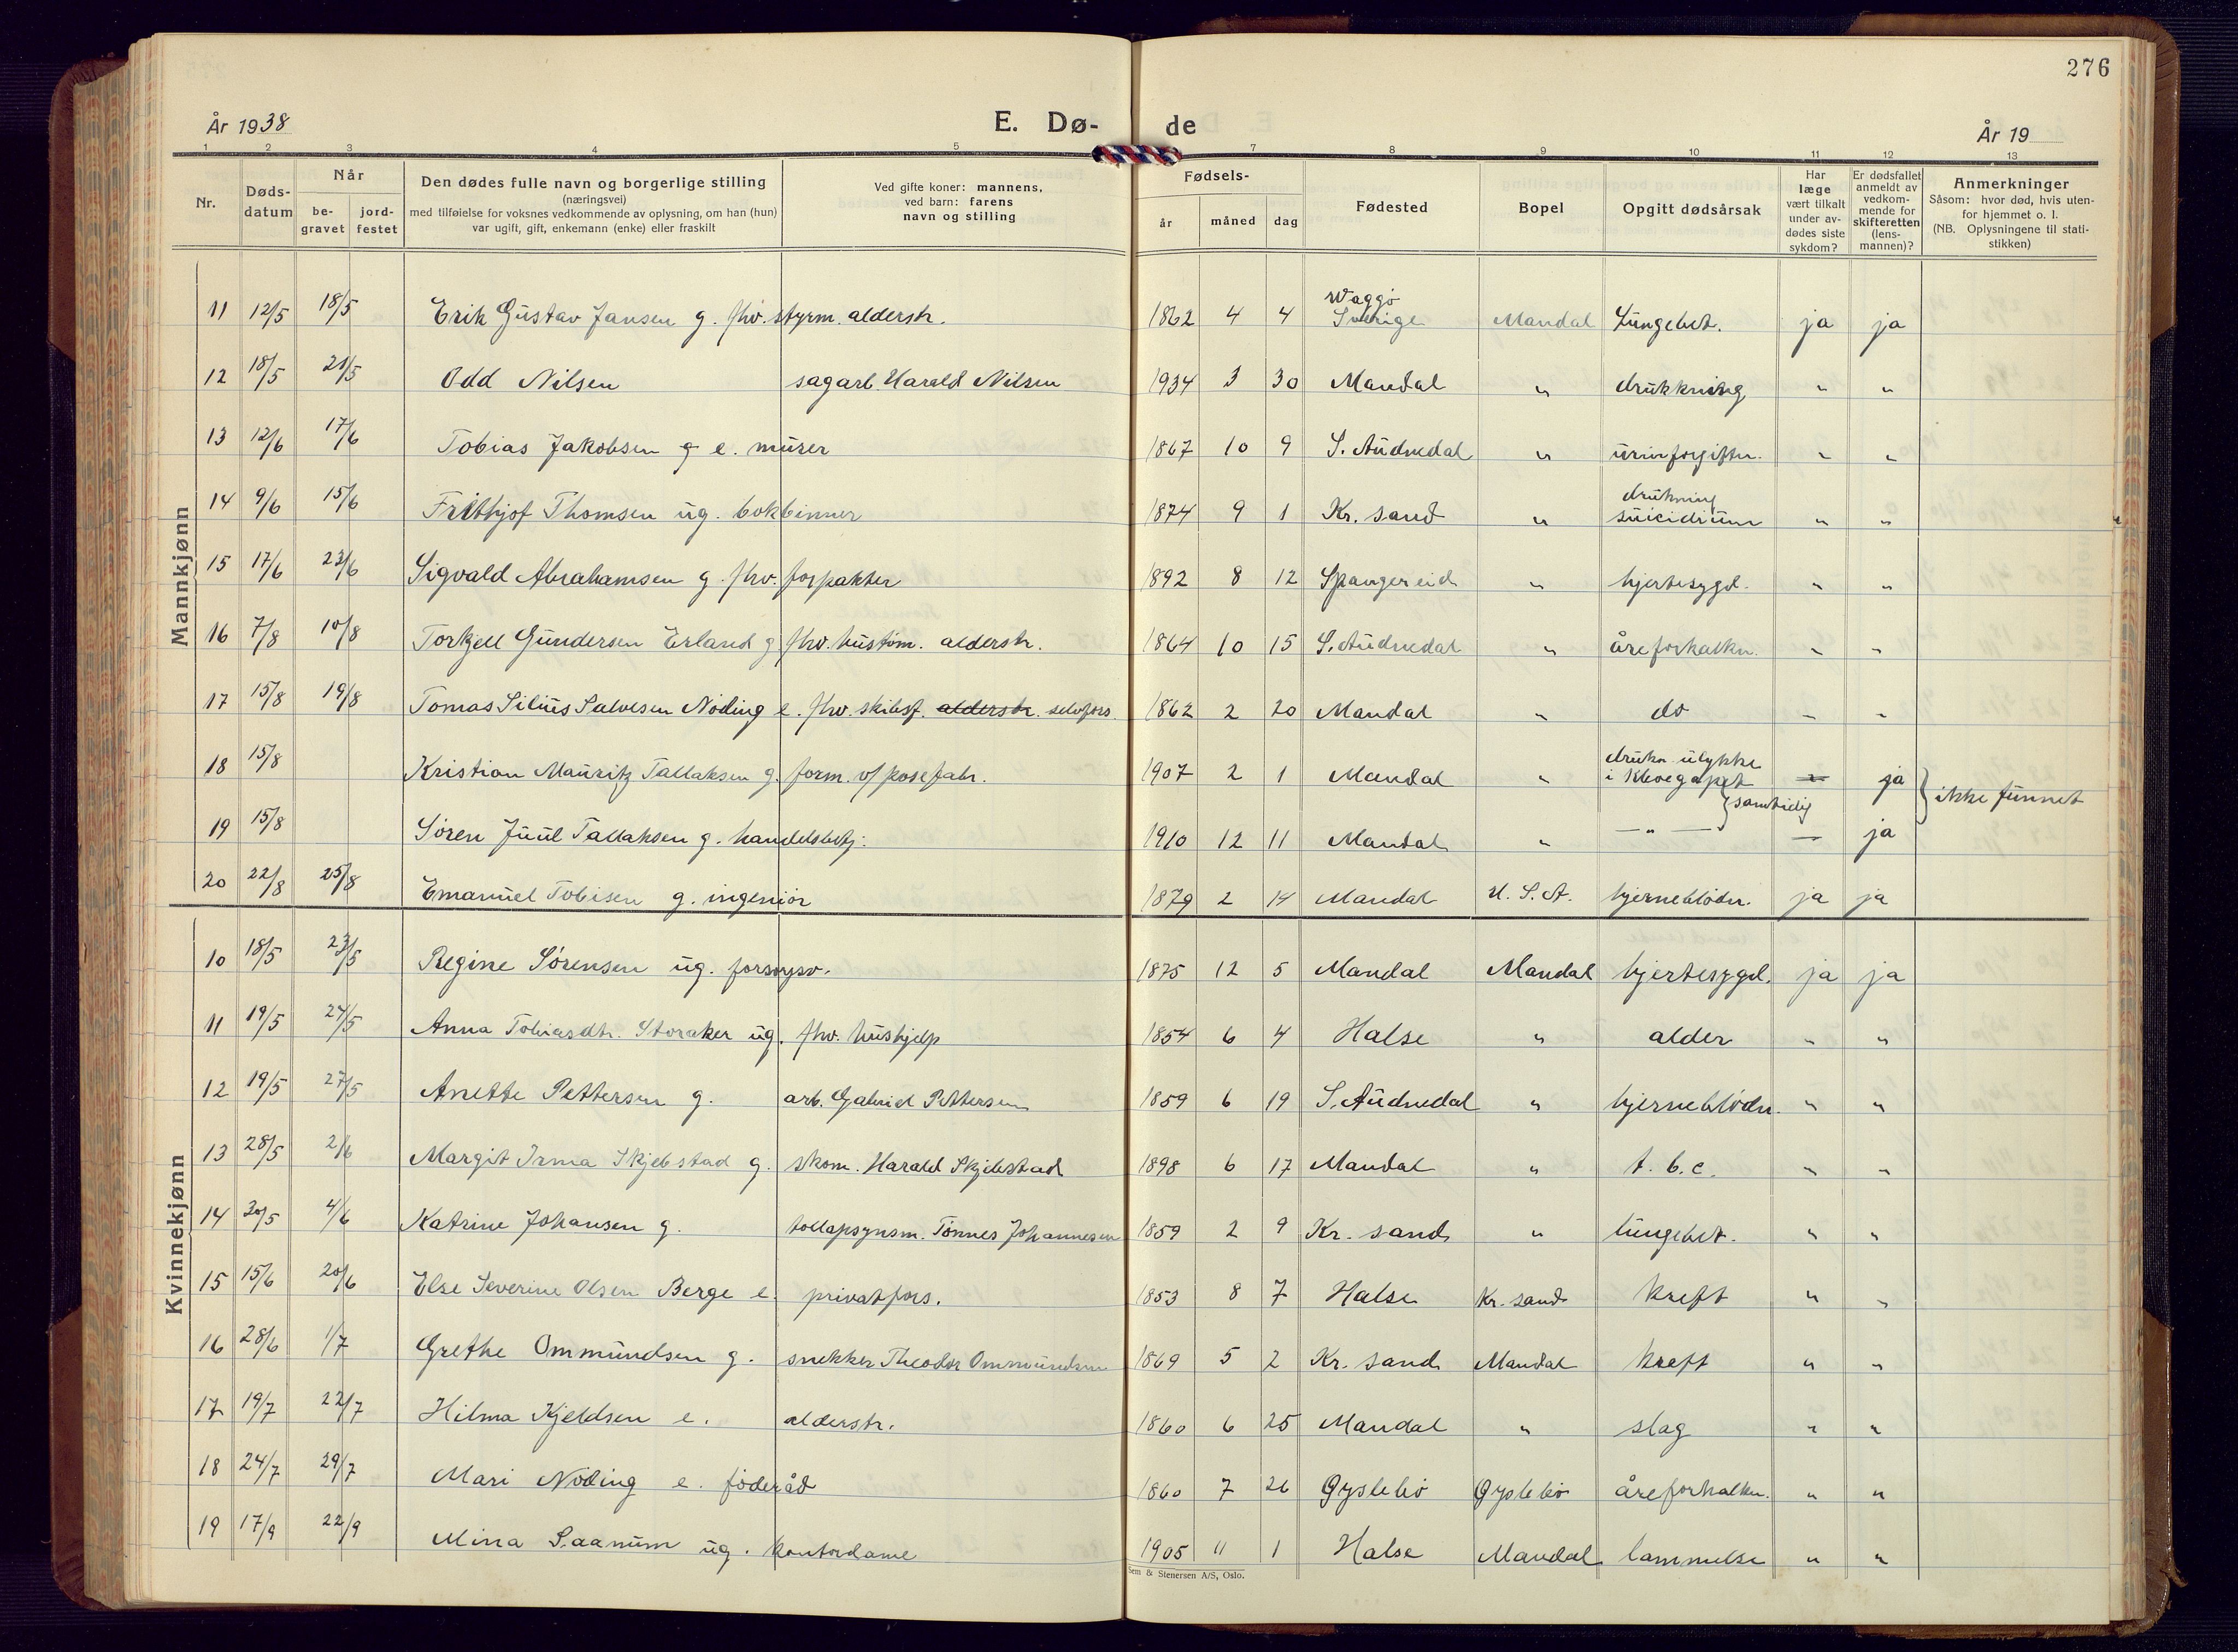 276
År 1938 E. Dø- de År 19
1 2 3 4 5 7 8 9 10 11 12 13
Nr. Døds-datum Når be-gravet jord-festet Den dødes fulle navn og borgerlige stilling (næringsvei) med tilføielse for voksnes vedkommende av oplysning, om han (hun) var ugift, gift, enkemann (enke) eller fraskilt Ved gifte koner: mannens, ved barn: farens navn og stilling Fødsels- år måned dag Fødested Bopel Opgitt dødsårsak Har læge vært tilkalt under av-dødes siste sykdom? Er dødsfallet anmeldt av vedkom-mende for skifteretten (lens-mannen)? Anmerkninger Såsom: hvor død, hvis uten-for hjemmet o. l. (NB. Oplysningene til stati-stikken)
Mannkjønn
11 12/5 18/5 Erik Gustav Jansen g. fhv. styrm. alderstr. 1862 4 4 Waggö Sverige Mandal Lungebet. ja ja
12 18/5 21/5 Odd Nilsen sagarb. Harald Nilsen 1934 3 30 Mandal " drukkning " "
13 12/6 17/6 Tobias Jakobsen g e. murer 1867 10 9 S. Audnedal " urinforgiftn. " "
14 9/6 15/6 Frithjof Thomsen ug. bokbinner 1874 9 1 Kr. sand " drukning suicidium " "
15 17/6 23/6 Sigvald Abrahamsen g. fhv. forpakter 1892 8 12 Spangereid " hjertesygd. " "
16 7/8 10/8 Torkjell Gundersen Erland g fhv. hustøm. alderstr. 1864 10 15 S. Audnedal " åreforkalkn. " "
17 15/8 19/8 Tomas Silius Salvesen Nöding e. fhv. skibsf. alderstr. selvfors. 1862 2 20 Mandal " do " "
18 15/8 Kristian Mauritz Tallaksen g. form. v/ posefabr. 1907 2 1 Mandal " drukn. ulykke i Klevegapet — ja
} samtidig } ikke funnet
19 15/8 Sören Juul Tallaksen g. handelsbetj. 1910 12 11 Mandal " — " — — ja
20 22/8 25/8 Emanuel Tobisen g. ingeniör 1879 2 14 Mandal U. S. A. hjerneblödn. ja ja
Kvinnekjønn
10 18/5 23/5 Regine Sörensen ug. forsogsv. 1875 12 5 Mandal Mandal hjertesygd. ja ja
11 19/5 24/5 Anna Tobiasdtr. Storaker ug. fhv. hushjelp 1854 6 4 Halse " alder " "
12 19/5 27/5 Anette Pettersen g. arb. Gabriel Pettersen 1859 6 19 S. Audnedal " hjerneblödn. " "
13 28/5 2/6 Margit Irma Skjebstad g. skom. Harald Skjebstad 1898 6 17 Mandal " t. b. c. " "
14 30/5 4/6 Katrine Johansen g. tollopsynsm. Tönnes Johannesen 1859 2 9 Kr. sand " lungebet. " "
15 15/6 20/6 Else Severine Olsen Berge e. privatfors. 1853 8 7 Halse Kr. sand kreft " "
16 28/6 1/7 Grethe Ommundsen g. snekker Theodor Ommundsen 1869 5 2 Kr. sand Mandal kreft " "
17 19/7 22/7 Hilma Kjeldsen e. alderstr. 1860 6 25 Mandal " slag " "
18 24/7 29/7 Mari Nöding e. föderåd 1860 7 26 Gyslebö Gyslebö åreforkalkn. " "
19 17/9 22/9 Mina Saanum ug. kontordame 1905 11 1 Halse Mandal lammelse " "
Sem & Stenersen A/S, Oslo.